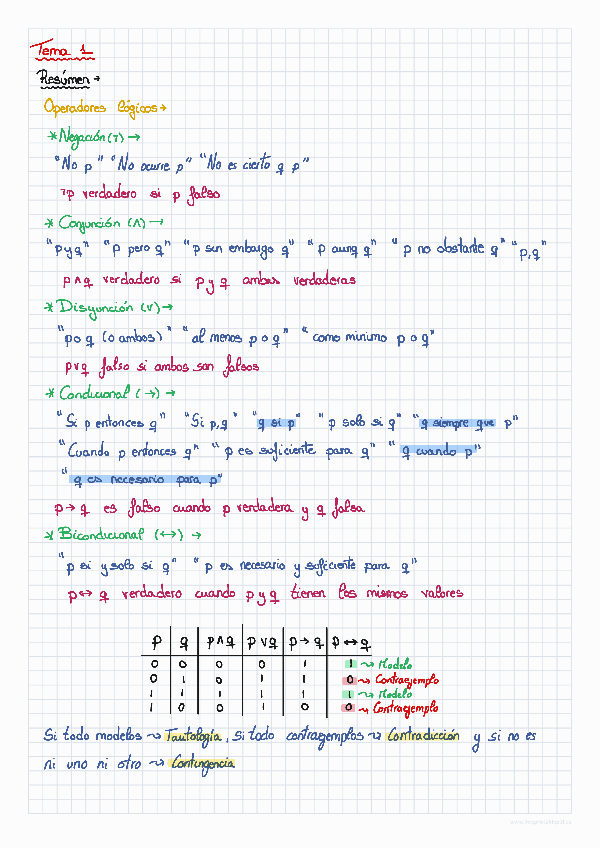 Tema 1
Resúmen→
Operadores lógicos→
*Negación(7)→
"No p" "No ocurre p" "No es cierto q p"
¬p verdadero si p falso
* Conjunción (∧)→
"p y q" "p pero q" "p sin embargo q" "p aunq q" "p no obstante q" "p,q"
p∧q verdadero si p y q ambas verdaderas
* Disyunción (∨)→
"p o q (o ambos)" "al menos p o q" "como mínimo p o q"
p∨q falso si ambos son falsos
* Condicional (→)→
"Si p entonces q" "Si p,q" "q si p" "p solo si q" "q siempre que p"
"Cuando p entonces q" "p es suficiente para q" "q cuando p"
"q es necesario para p"
p→q es falso cuando p verdadera y q falsa
* Bicondicional (↔)→
"p si y solo si q" "p es necesario y suficiente para q"
p↔q verdadero cuando p y q tienen los mismos valores
p q p∧q p∨q p→q p↔q
0 0 0 0 1 1 ~> Modelo
0 1 0 1 1 0 ~> Contraejemplo
1 1 1 1 1 1 ~> Modelo
1 0 0 1 0 0 ~> Contraejemplo
Si todo modelos ~> Tautología, si todo contraejemplos ~> Contradicción y si no es
ni uno ni otro ~> Contingencia